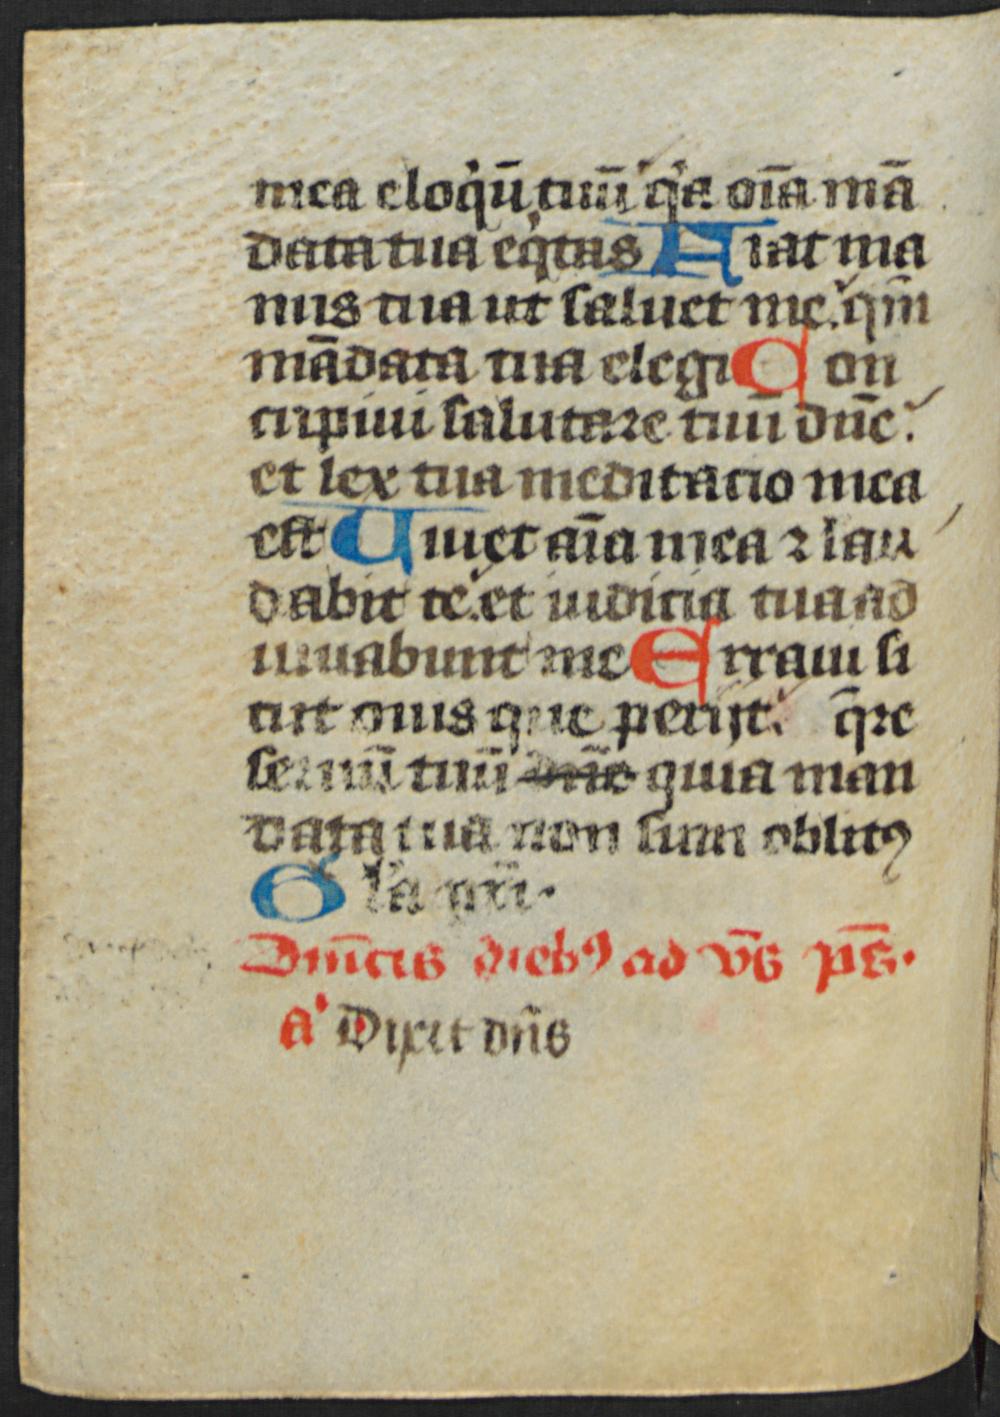 mea eloq̇ū tuū q̇a oīa mā
data tua eq̇tas Fiat ma
nus tua ut saluet me qm̄
mādata tua elegi Con
cupiui salutare tuū dn̄e
et lex tua meditatio mea
est Uiuet aīa mea ⁊ lau
dabit te et iudicia tua ad
iuuabunt me Erraui si
cut ouis que perijt q̄re
seruū tuū dn̄e quia man
data tua non sum oblitꝯ
Gl'a pri·
Dn̄icis diebꝯ ad vs̄ ps̄·
a' Dixit dn̄s